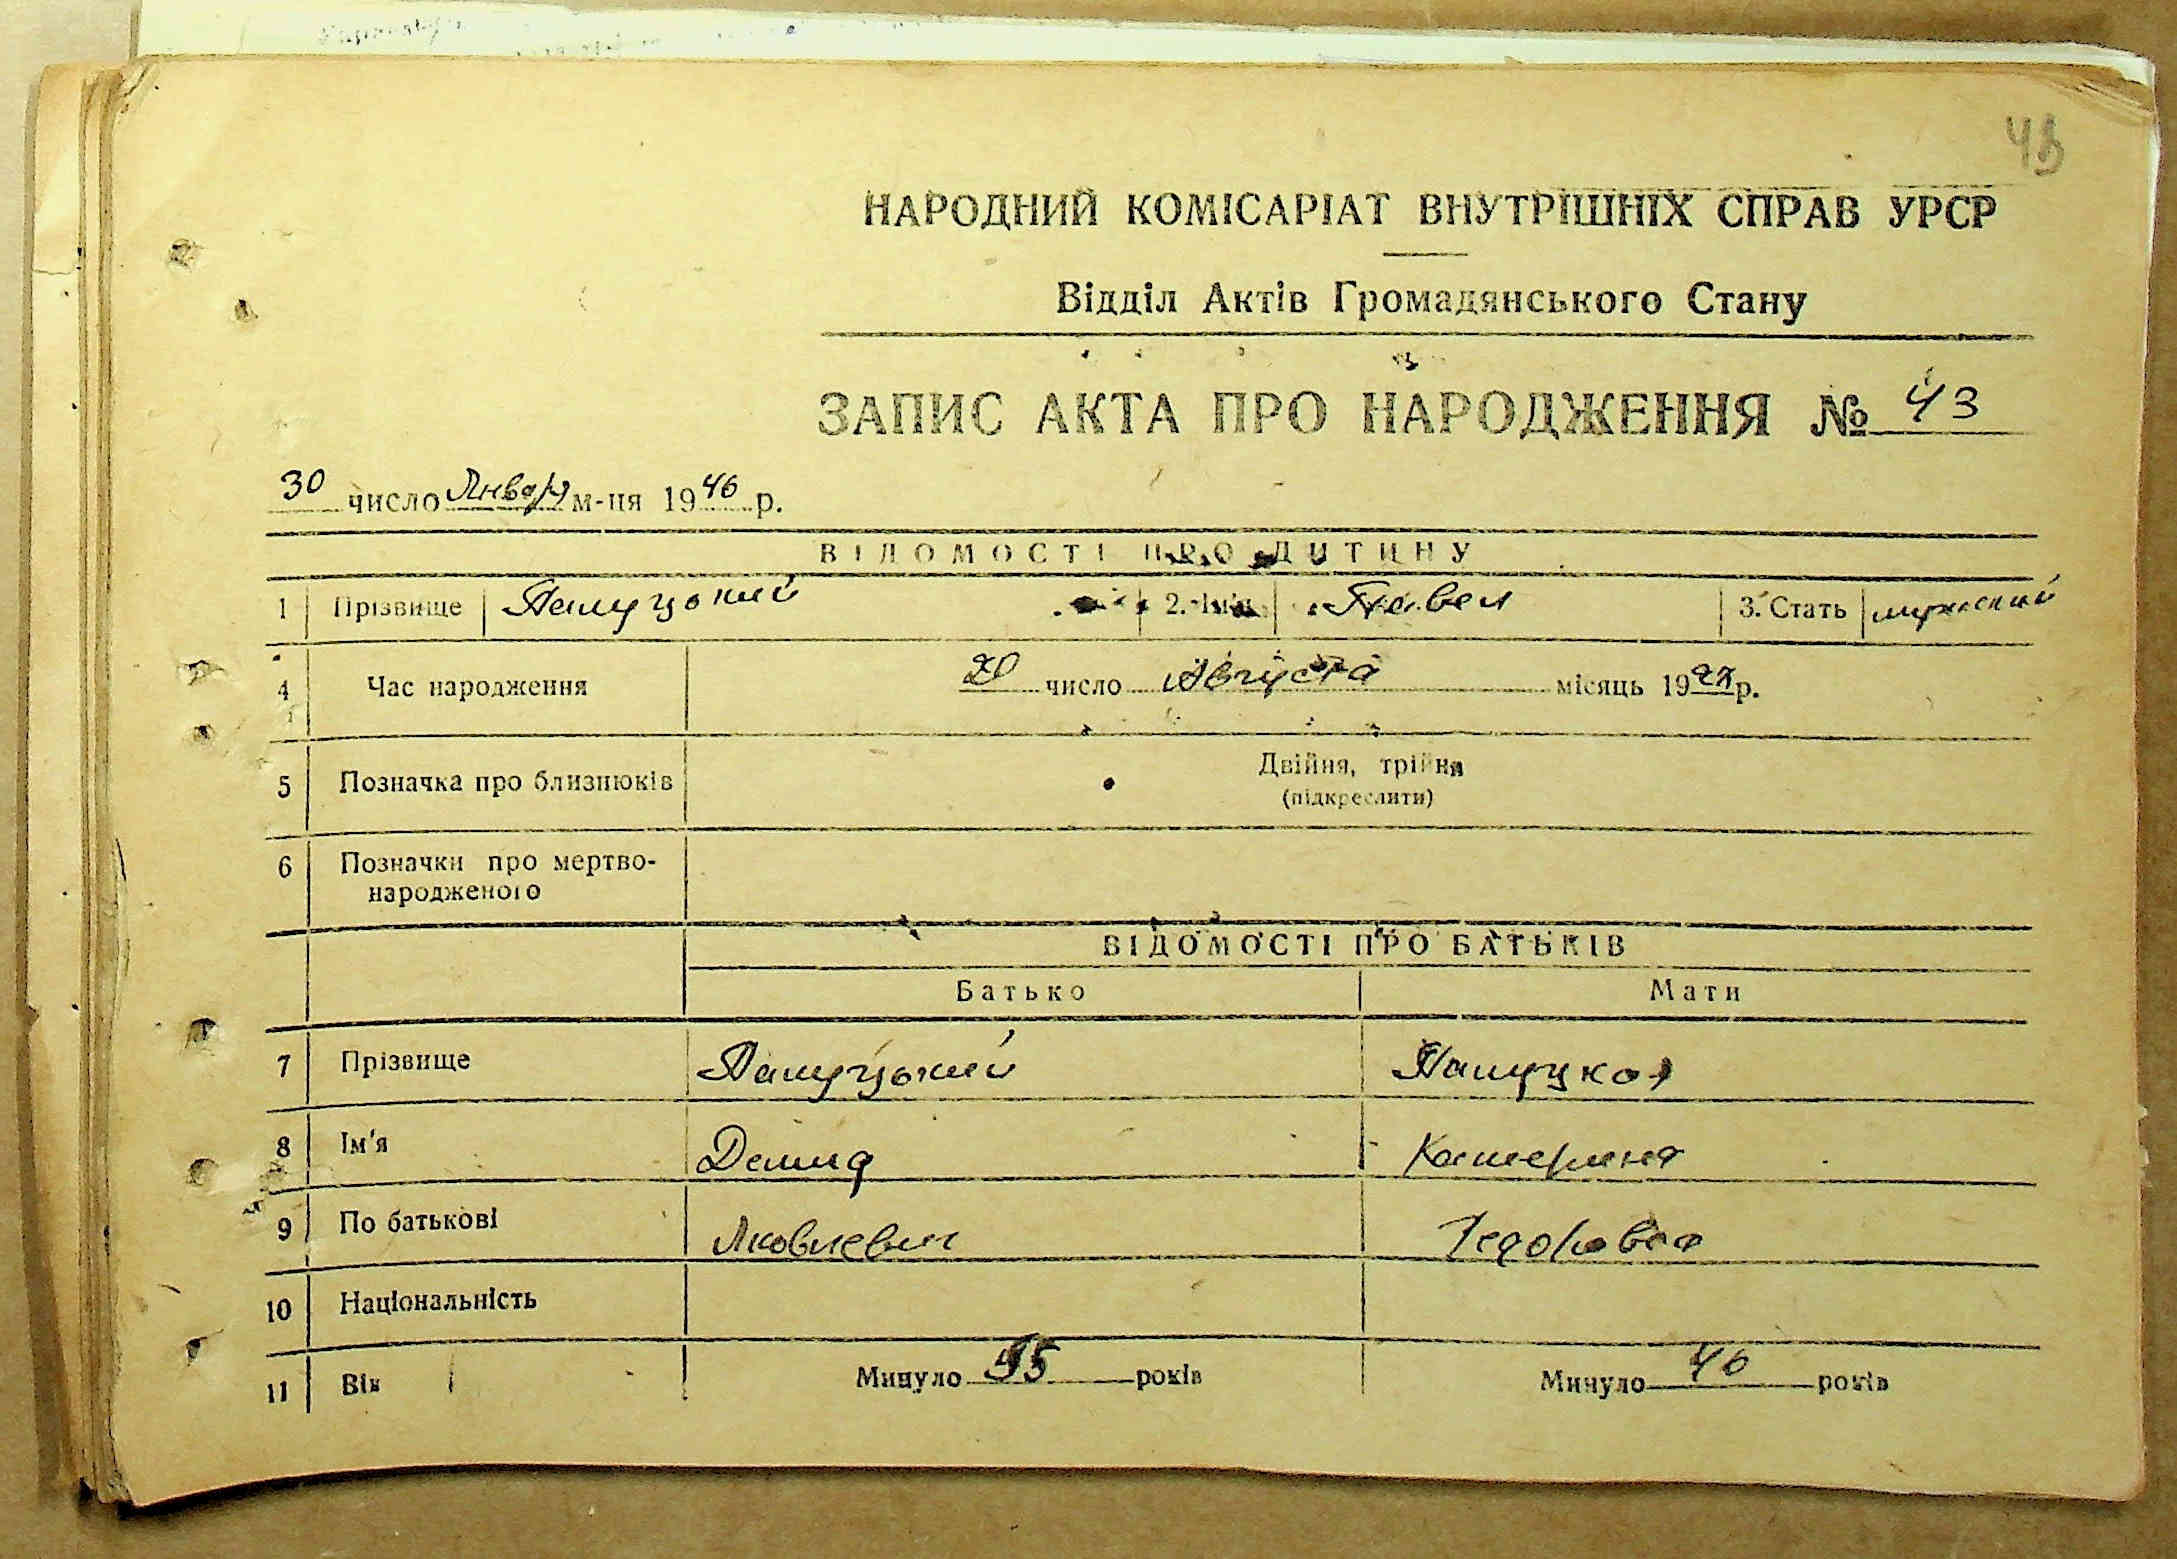 43
НАРОДНИЙ КОМІСАРІАТ ВНУТРІШНІХ СПРАВ УРСР
Відділ Актів Громадянського Стану
ЗАПИС АКТА ПРО НАРОДЖЕННЯ № 43
30 число Января м-ця 1946 р.
ВІДОМОСТІ ПРО ДИТИНУ
1 Прізвище 2. Ім'я Павел 3. Стать мужский
4 Час народження 20 число Августа місяць 19 р.
5 Позначка про близнюків Двійня, трійня
(підкреслити)
6 Позначки про мертво-
народженого
ВІДОМОСТІ ПРО БАТЬКІВ
Батько Мати
7 Прізвище
8 Ім'я Демид Катерина
9 По батькові Яковлевич Федоровна
10 Національність
11 Вік Минуло років Минуло 46 років